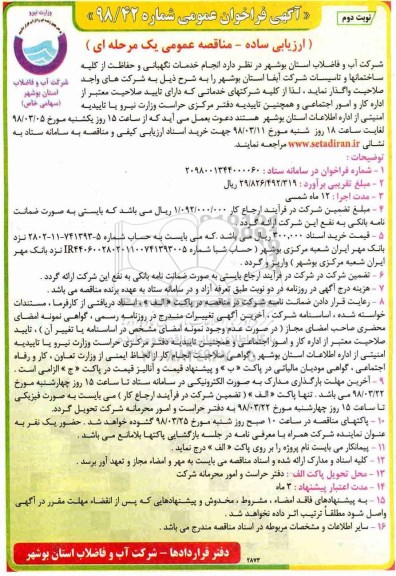 نوبت دوم
«آگهی فراخوان عمومی شماره ۹۸/۴۲»
وزارت نیرو
شرکت آب و فاضلاب
استان بوشهر
(سهامی خاص)
( ارزیابی ساده - مناقصه عمومی یک مرحله ای )
شرکت آب و فاضلاب استان بوشهر در نظر دارد انجام خدمات نگهبانی و حفاظت از کلیه
ساختمانها و تاسیسات شرکت آبفا استان بوشهر را به شرح ذیل به شرکت های واجد
صلاحیت واگذار نماید ، لذا از کلیه شرکتهای خدماتی که دارای تایید صلاحیت معتبر از
اداره کار و امور اجتماعی و همچنین تاییدیه دفتر مرکزی حراست وزارت نیرو یا تاییدیه
امنیتی از اداره اطلاعات استان بوشهر هستند دعوت بعمل می آید که از ساعت ۱۵ روز یکشنبه مورخ ۹۸/۰۳/۰۵
لغایت ساعت ۱۸ روز شنبه مورخ ۹۸/۰۳/۱۱ جهت خرید اسناد ارزیابی کیفی و مناقصه به سامانه ستاد به
نشانی www.setadiran.ir مراجعه نمایند.
توضیحات :
۱ - شماره فراخوان در سامانه ستاد : ۲۰۹۸۰۰۱۳۴۴۰۰۰۰۶۰
۲ - مبلغ تقریبی برآورد : ۲۹/۸۲۶/۴۹۲/۳۱۹ ریال
۳ - مدت اجرا : ۱۲ ماه شمسی
۴ - مبلغ تضمین شرکت در فرآیند ارجاع کار ۱/۰۹۲/۰۰۰/۰۰۰ ریال می باشد که بایستی به صورت ضمانت
نامه بانکی به نفع این شرکت ارائه گردد.
۵ - قیمت خرید اسناد ۳۰۰/۰۰۰ ریال می باشد .که می بایست به حساب شماره ۵-۷۴۱۳۹۳-۱۱-۲۸۰۲ نزد
بانک مهر ایران شعبه مرکزی بوشهر ( حساب شبا شماره IR۴۴۰۶۰۰۲۸۰۲۰۱۰۰۷۴۱۳۹۳۰۰۵ نزد بانک مهر
ایران شعبه مرکزی بوشهر ) واریز و گردد .
۶ - تضمین شرکت در شرکت در فرآیند ارجاع بایستی به صورت ضمانت نامه بانکی به نفع این شرکت ارائه گردد .
۷ - هزینه درج آگهی در روزنامه در دو نوبت طبق تعرفه آزاد و در سامانه ستاد به عهده برنده مناقصه می باشد .
۸ - رعایت قرار دادن ضمانت نامه شرکت در مناقصه در پاکت « الف » و اسناد دریافتی از کارفرما ، مستندات
خواسته شده ، اساسنامه شرکت ، آخرین آگهی تغییرات مندرج در روزنامه رسمی ، گواهی نمونه امضای
محضری صاحب امضای مجاز ( در صورت عدم وجود نمونه امضای مشخص در اساسنامه یا تغییر آن ) ، تایید
صلاحیت معتبر از اداره کار و امور اجتماعی و همچنین تاییدیه دفتر مرکزی حراست وزارت نیرو یا تاییدیه
امنیتی از اداره اطلاعات استان بوشهر ، گواهی صلاحیت انجام کار از لحاظ ایمنی از وزارت تعاون ، کار و رفاه
اجتماعی ، گواهی مودیان مالیاتی در پاکت « ب » و پیشنهاد قیمت و آنالیز قیمت در پاکت « ج » الزامی است .
۹ - آخرین مهلت بارگذاری مدارک به صورت الکترونیکی در سامانه ستاد تا ساعت ۱۵ روز چهارشنبه مورخ
۹۸/۰۳/۲۲ می باشد . تنها پاکت « الف » ( تضمین شرکت در فرآیند ارجاع کار ) می بایست به صورت فیزیکی
تا ساعت ۱۵ روز چهارشنبه مورخ ۹۸/۰۳/۲۲ به دفتر حراست و امور محرمانه شرکت تحویل گردد.
۱۰ - پاکتهای مناقصه در ساعت ۱۰ صبح روز شنبه مورخ ۹۸/۰۳/۲۵ گشوده خواهد شد . حضور یک نفر به
عنوان نماینده شرکت همراه با معرفی نامه در جلسه بازگشایی پاکتها بلامانع می باشد .
۱۱ - پیمانکار می بایست نام پروژه را بر روی پاکت « الف » درج نماید .
۱۲ - کلیه اسناد و مدارک ارائه شده و اسناد مناقصه می بایست به مهر و امضاء مجاز و تعهد آور برسد .
۱۳ - محل تحویل پاکت الف : دفتر حراست و امور محرمانه شرکت
۱۴ - مدت اعتبار پیشنهاد : ۳ ماه
۱۵ - به پیشنهادهای فاقد امضاء ، مشروط ، مخدوش و پیشنهادهایی که پس از انقضاء مهلت مقرر در آگهی
واصل شود مطلقاً ترتیب اثر داده نخواهد شد .
۱۶ - سایر اطلاعات و مشخصات مربوطه در اسناد مناقصه مندرج می باشد .
دفتر قراردادها - شرکت آب و فاضلاب استان بوشهر
۲۸۷۳